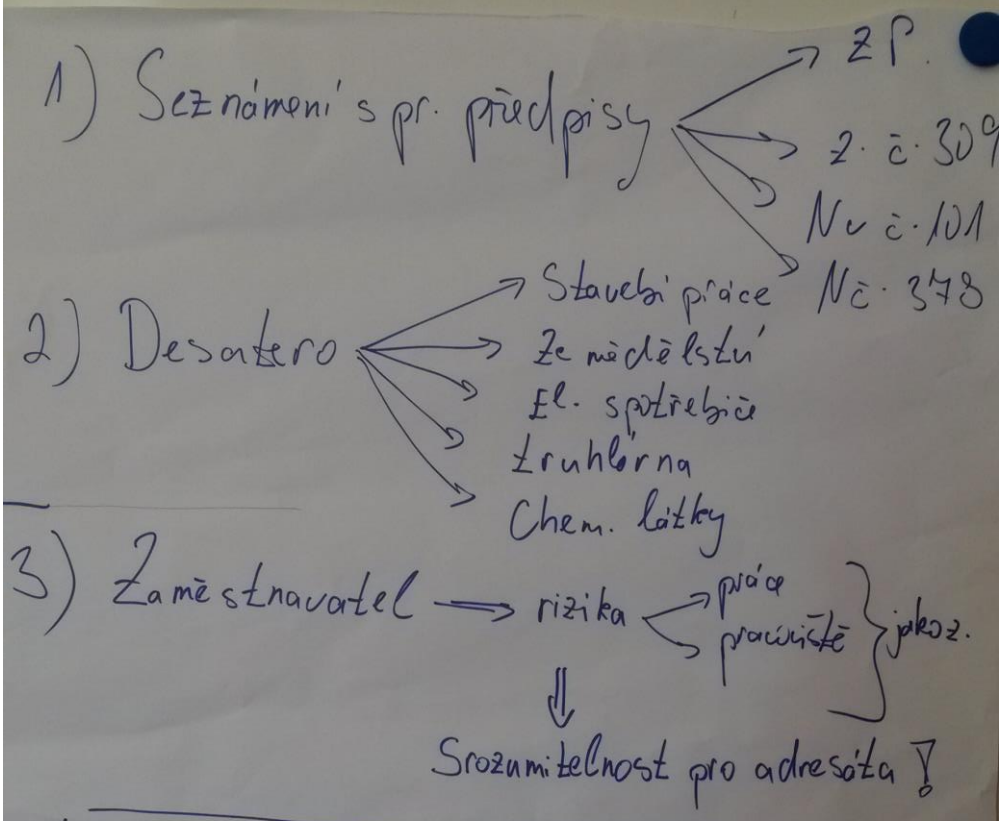 1) Seznámení s pr. předpisy
ZP.
z. č. 309
Nv č. 101
Nč. 378
2) Desatero
Stavebí práce
Zemědělství
El. spotřebiče
truhlárna
Chem. látky
3) Zaměstnavatel rizika
práce
pracoviště
jako z.
Srozumitelnost pro adresáta !